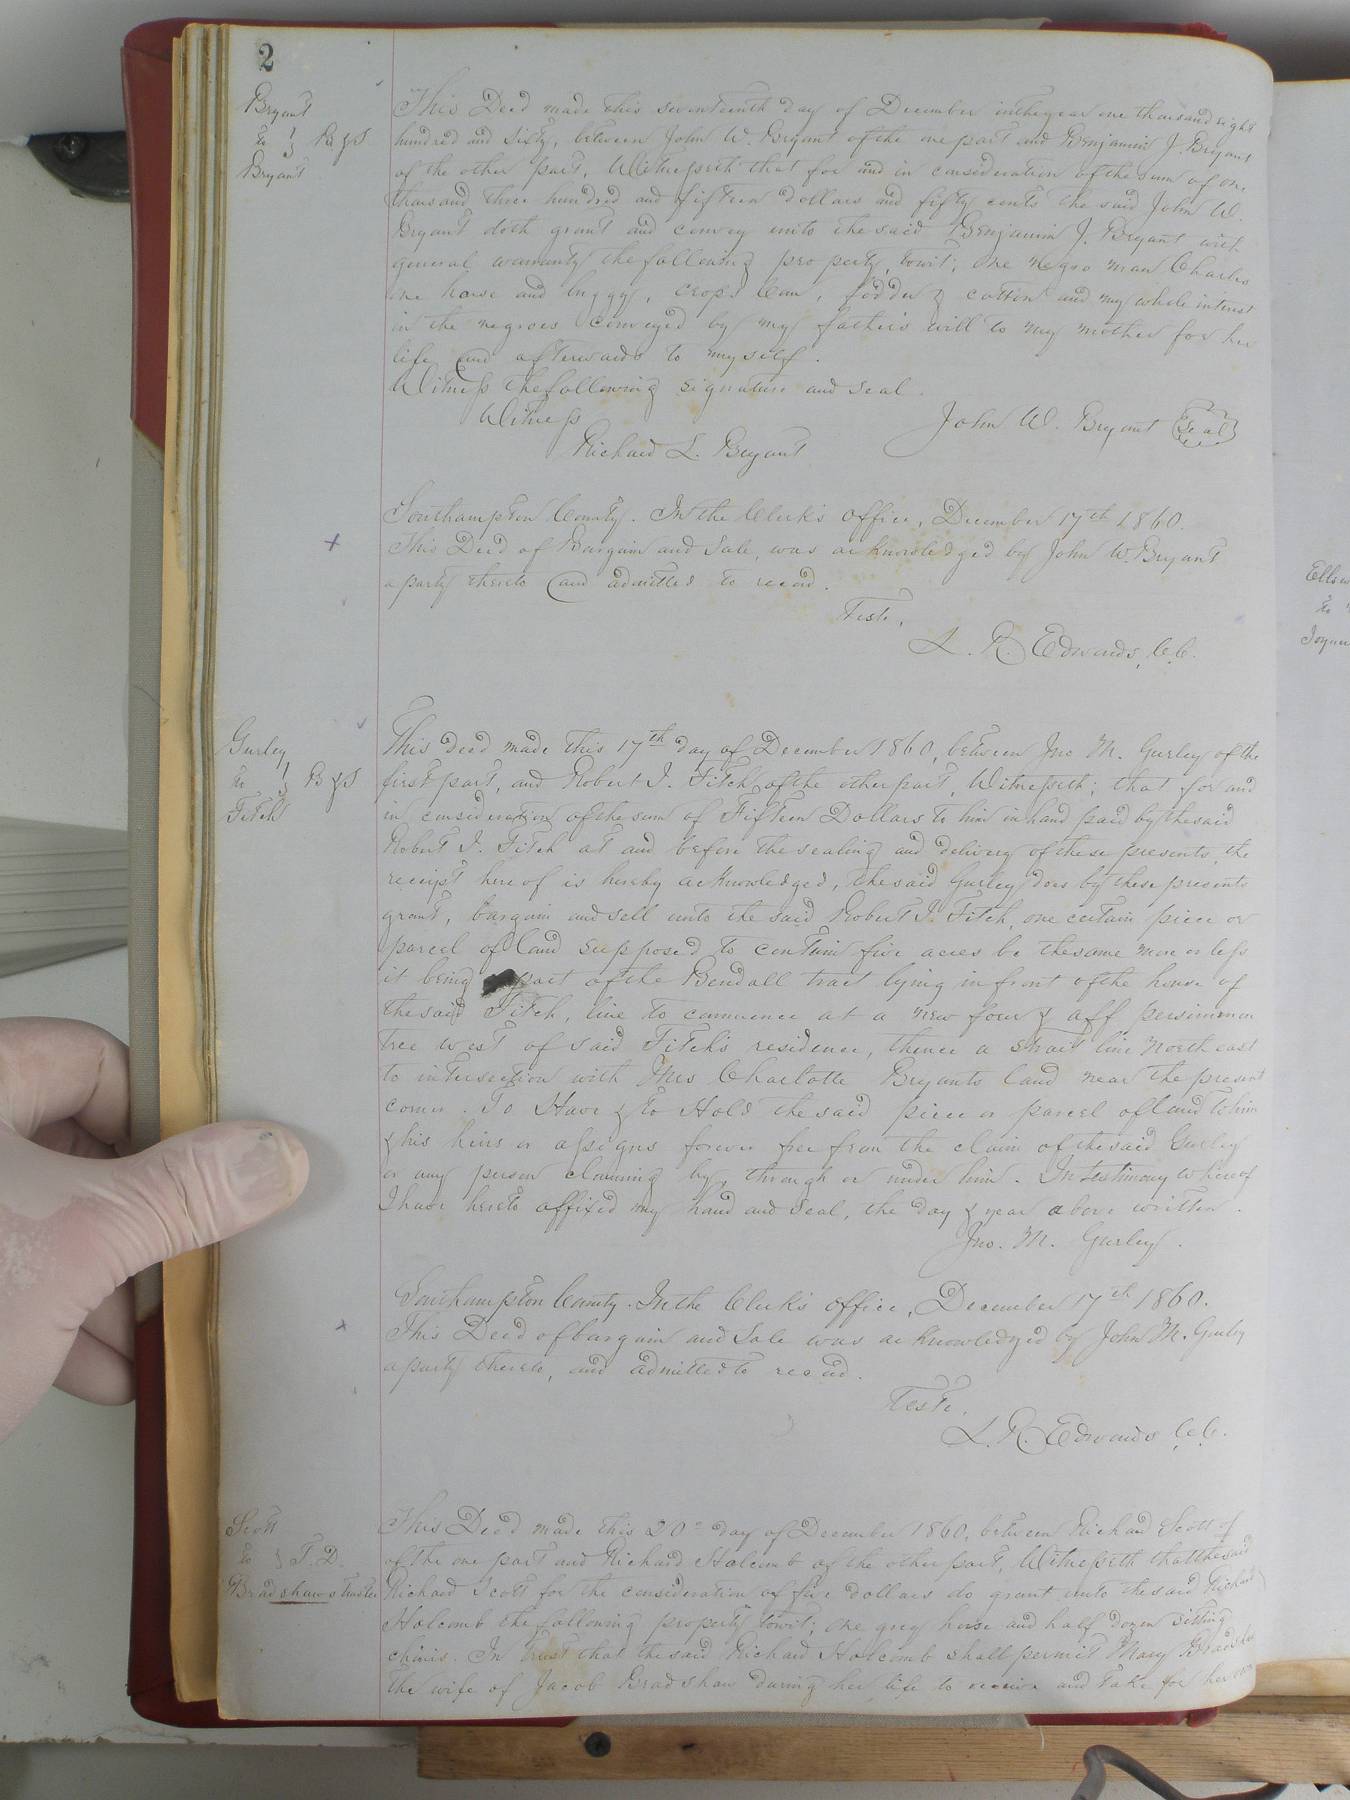 2
Bryant
to } B & S
Bryant
This Deed made this seventeenth day of December in the year one thousand eight
hundred and sixty, between John W. Bryant of the one part and Benjamin J. Bryant
of the other part, Witnesseth that for and in consideration of the sum of one
thousand three hundred and fifteen dollars and fifty cents the said John W.
Bryant doth grant and convey unto the said Benjamin J. Bryant with
general warranty the following property, towit; one negro man Charles
one horse and buggy, crops corn, fodder & cotton and my whole interest
in the negroes conveyed by my father's will to my mother for her
life and afterwards to myself.
Witness the following signature and seal.
Witness
John W. Bryant Seal
Richard L. Bryant
Southampton County. In the Clerk's office, December 17th 1860.
This Deed of Bargain and Sale, was acknowledged by John W. Bryant
a party thereto and admitted to record.
Teste,
L. R. Edwards, C.C.
Gurley
to } B & S
Fitch
This deed made this 17th day of December 1860, between Jno M. Gurley of the
first part, and Robert J. Fitch of the other part, Witnesseth; that for and
in consideration of the sum of Fifteen Dollars to him in hand paid by the said
Robert J. Fitch at and before the sealing and delivery of these presents, the
receipt here of is hereby acknowledged, the said Gurley does by these presents
grant, bargain and sell unto the said Robert J. Fitch, one certain piece or
parcel of land supposed to contain five acres be the same more or less
it being part of the Bendall tract lying in front of the house of
the said Fitch, line to commence at a new four & aff persimmon
tree west of said Fitch's residence, thence a strait line North east
to intersection with Mrs Charlotte Bryants land near the present
corner. To Have & to Hold the said piece or parcel of land to him
& his heirs or assigns forever free from the claim of the said Gurley
or any person claiming by, through or under him. In testimony whereof
I have hereto affixed my hand and seal, the day & year above written.
Jno. M. Gurley.
Southampton County. In the Clerk's office, December 17th 1860.
This Deed of bargain and Sale was acknowledged by John M. Gurley
a party thereto, and admitted to record.
Teste,
L. R. Edwards C.C.
Scott
to } T. D.
Bradshaws Trustee
This Deed made this 20th day of December 1860, between Richard Scott of
of the one part and Richard Holcomb of the other part, Witnesseth that the said
Richard Scott for the consideration of five dollars do grant unto the said Richard
Holcomb the following property towit; one grey horse and half dozen sitting
chairs. In trust that the said Richard Holcomb shall permit Mary Bradshaw
the wife of Jacob Bradshaw during her life to receive and take for her own